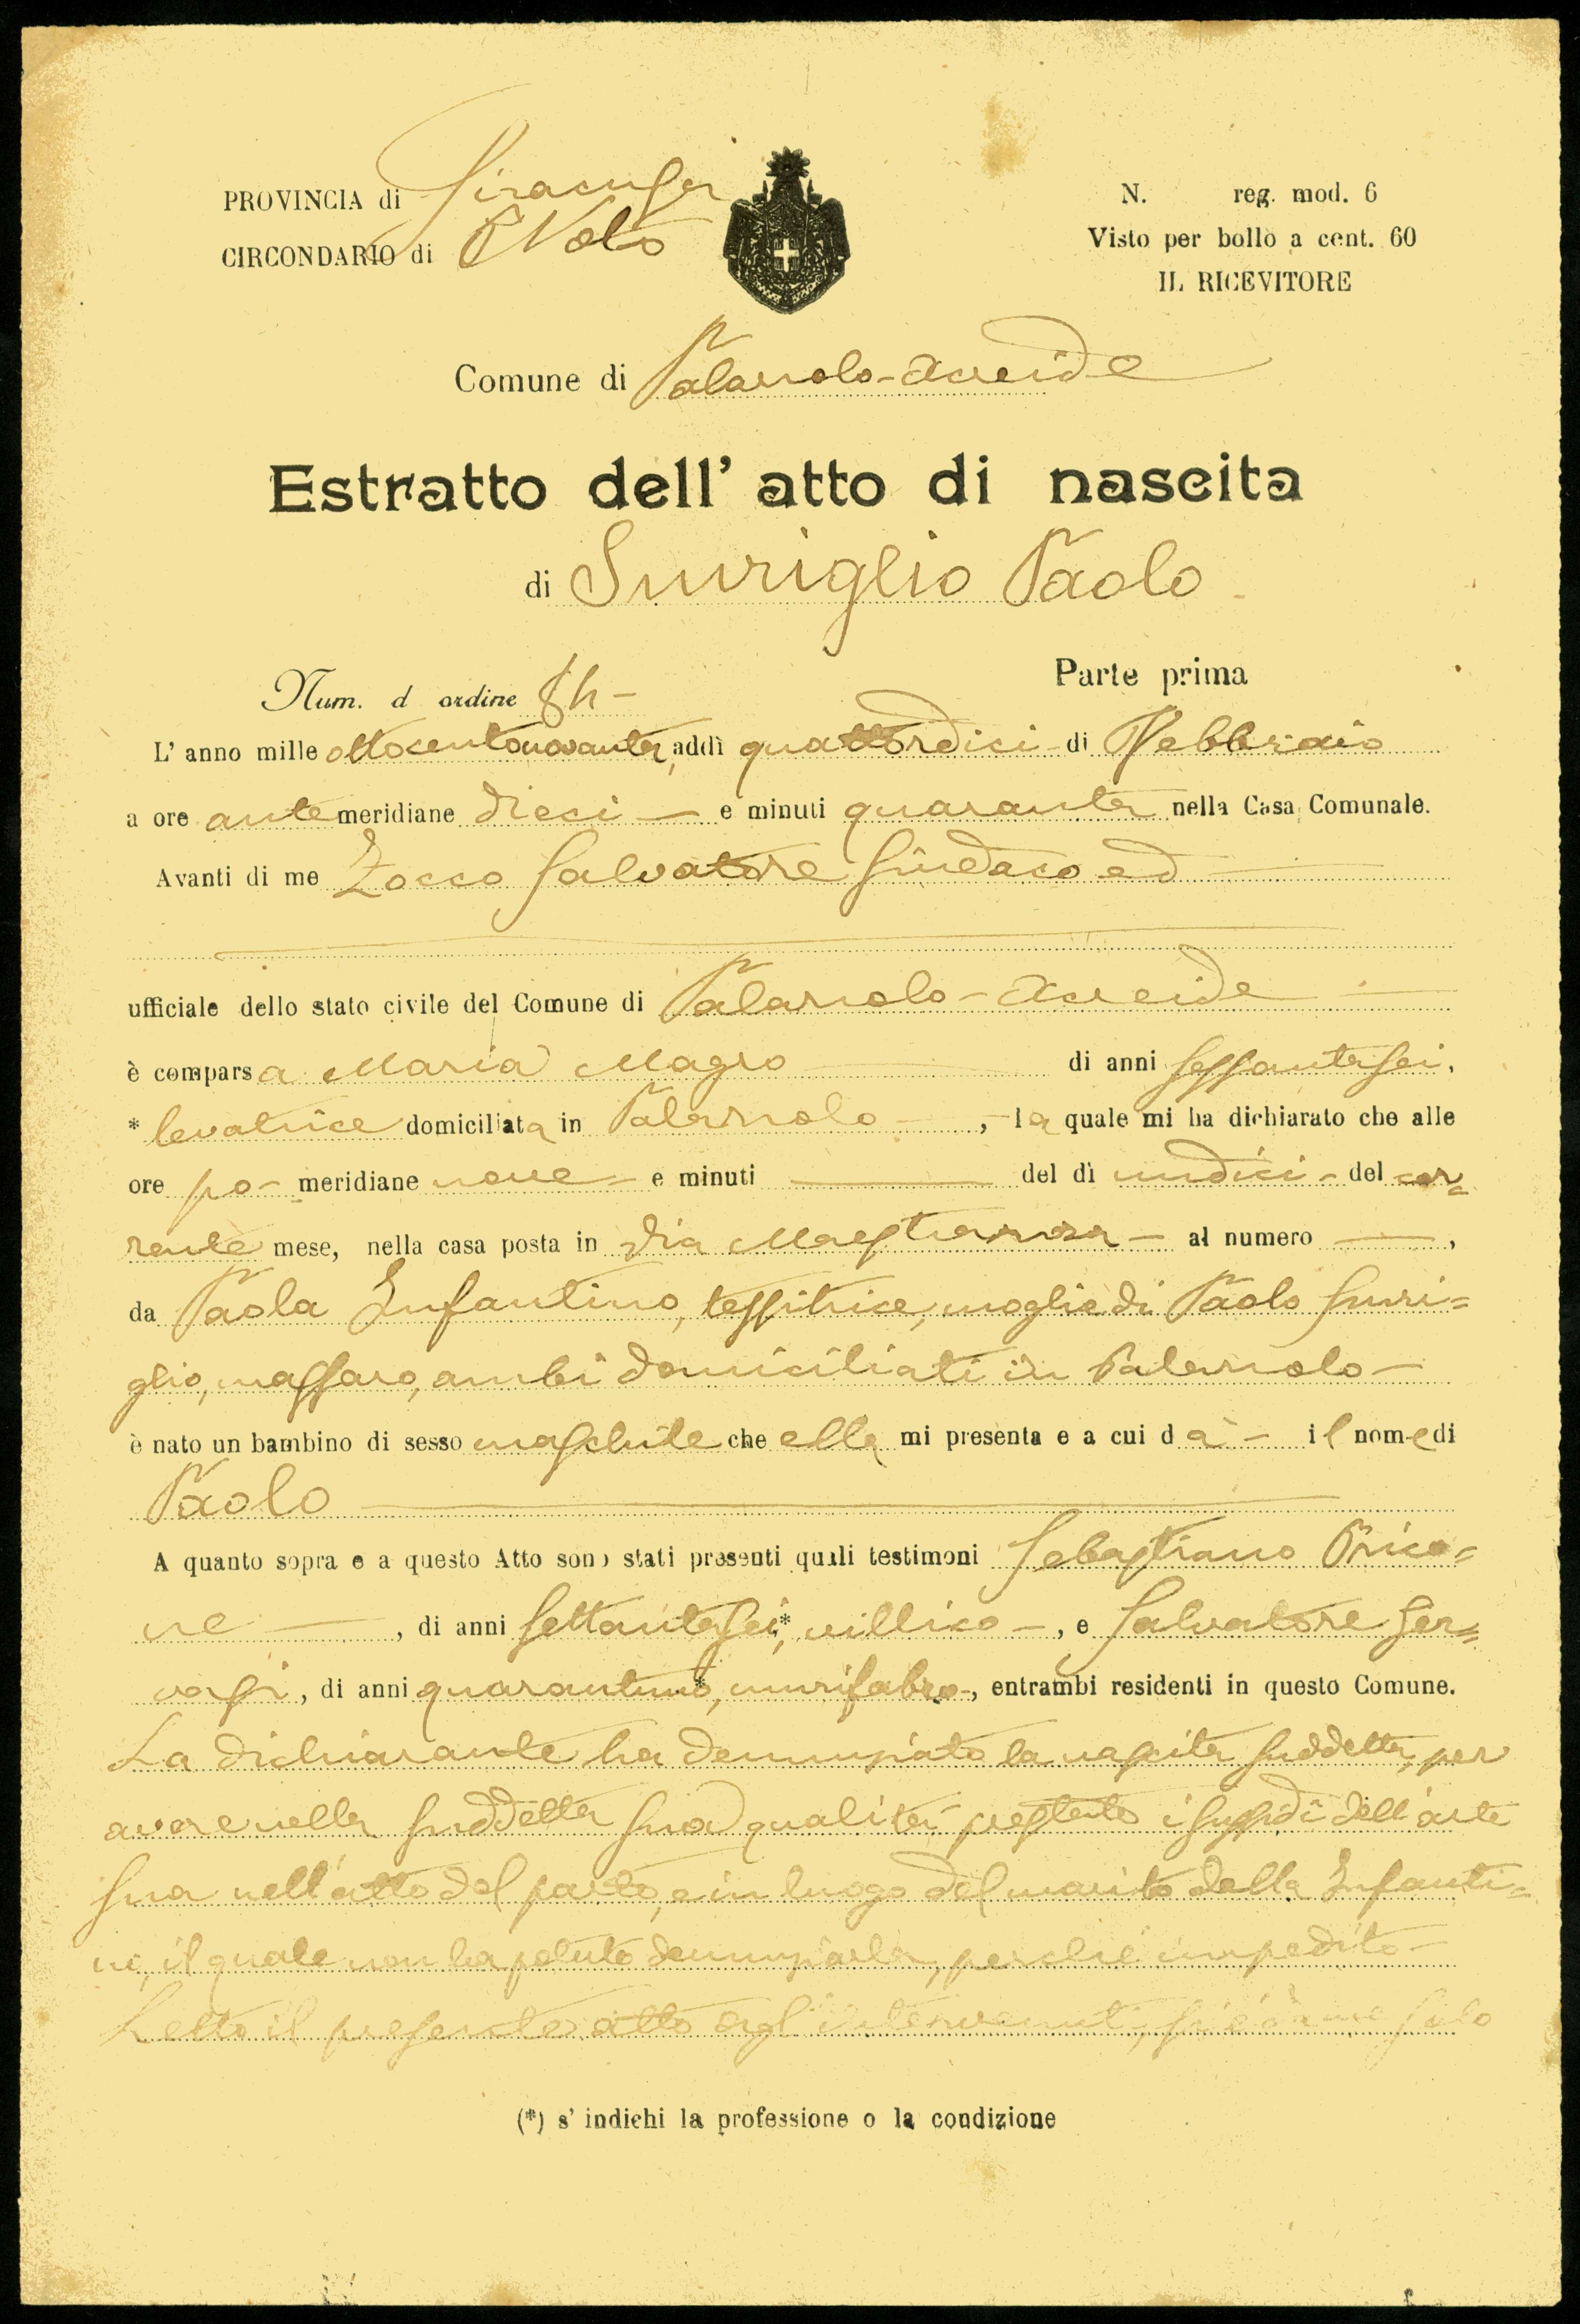 PROVINCIA di Siracusa
CIRCONDARIO di Noto
N. reg. mod. 6
Visto per bollo a cent. 60
IL RICEVITORE
Comune di Palazzolo-Acreide
Estratto dell' atto di nascita
di Suriglio Paolo
Parte prima
Num. d ordine
L' anno mille ottocentonovanta, addì quattordici di Febbraio
a ore antemeridiane dieci e minuti quaranta nella Casa Comunale.
Avanti di me Zocco Salvatore Sindaco ed
ufficiale dello stato civile del Comune di Palazzolo-Acreide
è comparsa Maria Magro di anni sessantasei,
* levatrice domiciliata in Palazzolo, la quale mi ha dichiarato che alle
ore po-meridiane nove e minuti — del dì undici del cor=
rente mese, nella casa posta in Via Maestranza al numero —,
da Paola Infantino, tessitrice, moglie di Paolo Suri=
glio, massaro, ambi domiciliati in Palazzolo
è nato un bambino di sesso maschile che ella mi presenta e a cui dà il nome di
Paolo
A quanto sopra e a questo Atto sono stati presenti quali testimoni Sebastiano
, di anni settantasei*, villico, e Salvatore Ser=
vasi, di anni quarantuno*, murifabro, entrambi residenti in questo Comune.
La dichiarante ha denunziato la nascita suddetta, per
avere nella suddetta sua qualità prestato i sussidi dell'arte
sua nell'atto del parto, e in luogo del marito della Infanti=
no, il quale non ha potuto denunziarla, perchè impedito
Letto il presente atto agl'intervenuti, si è da me solo
(*) s' indichi la professione o la condizione